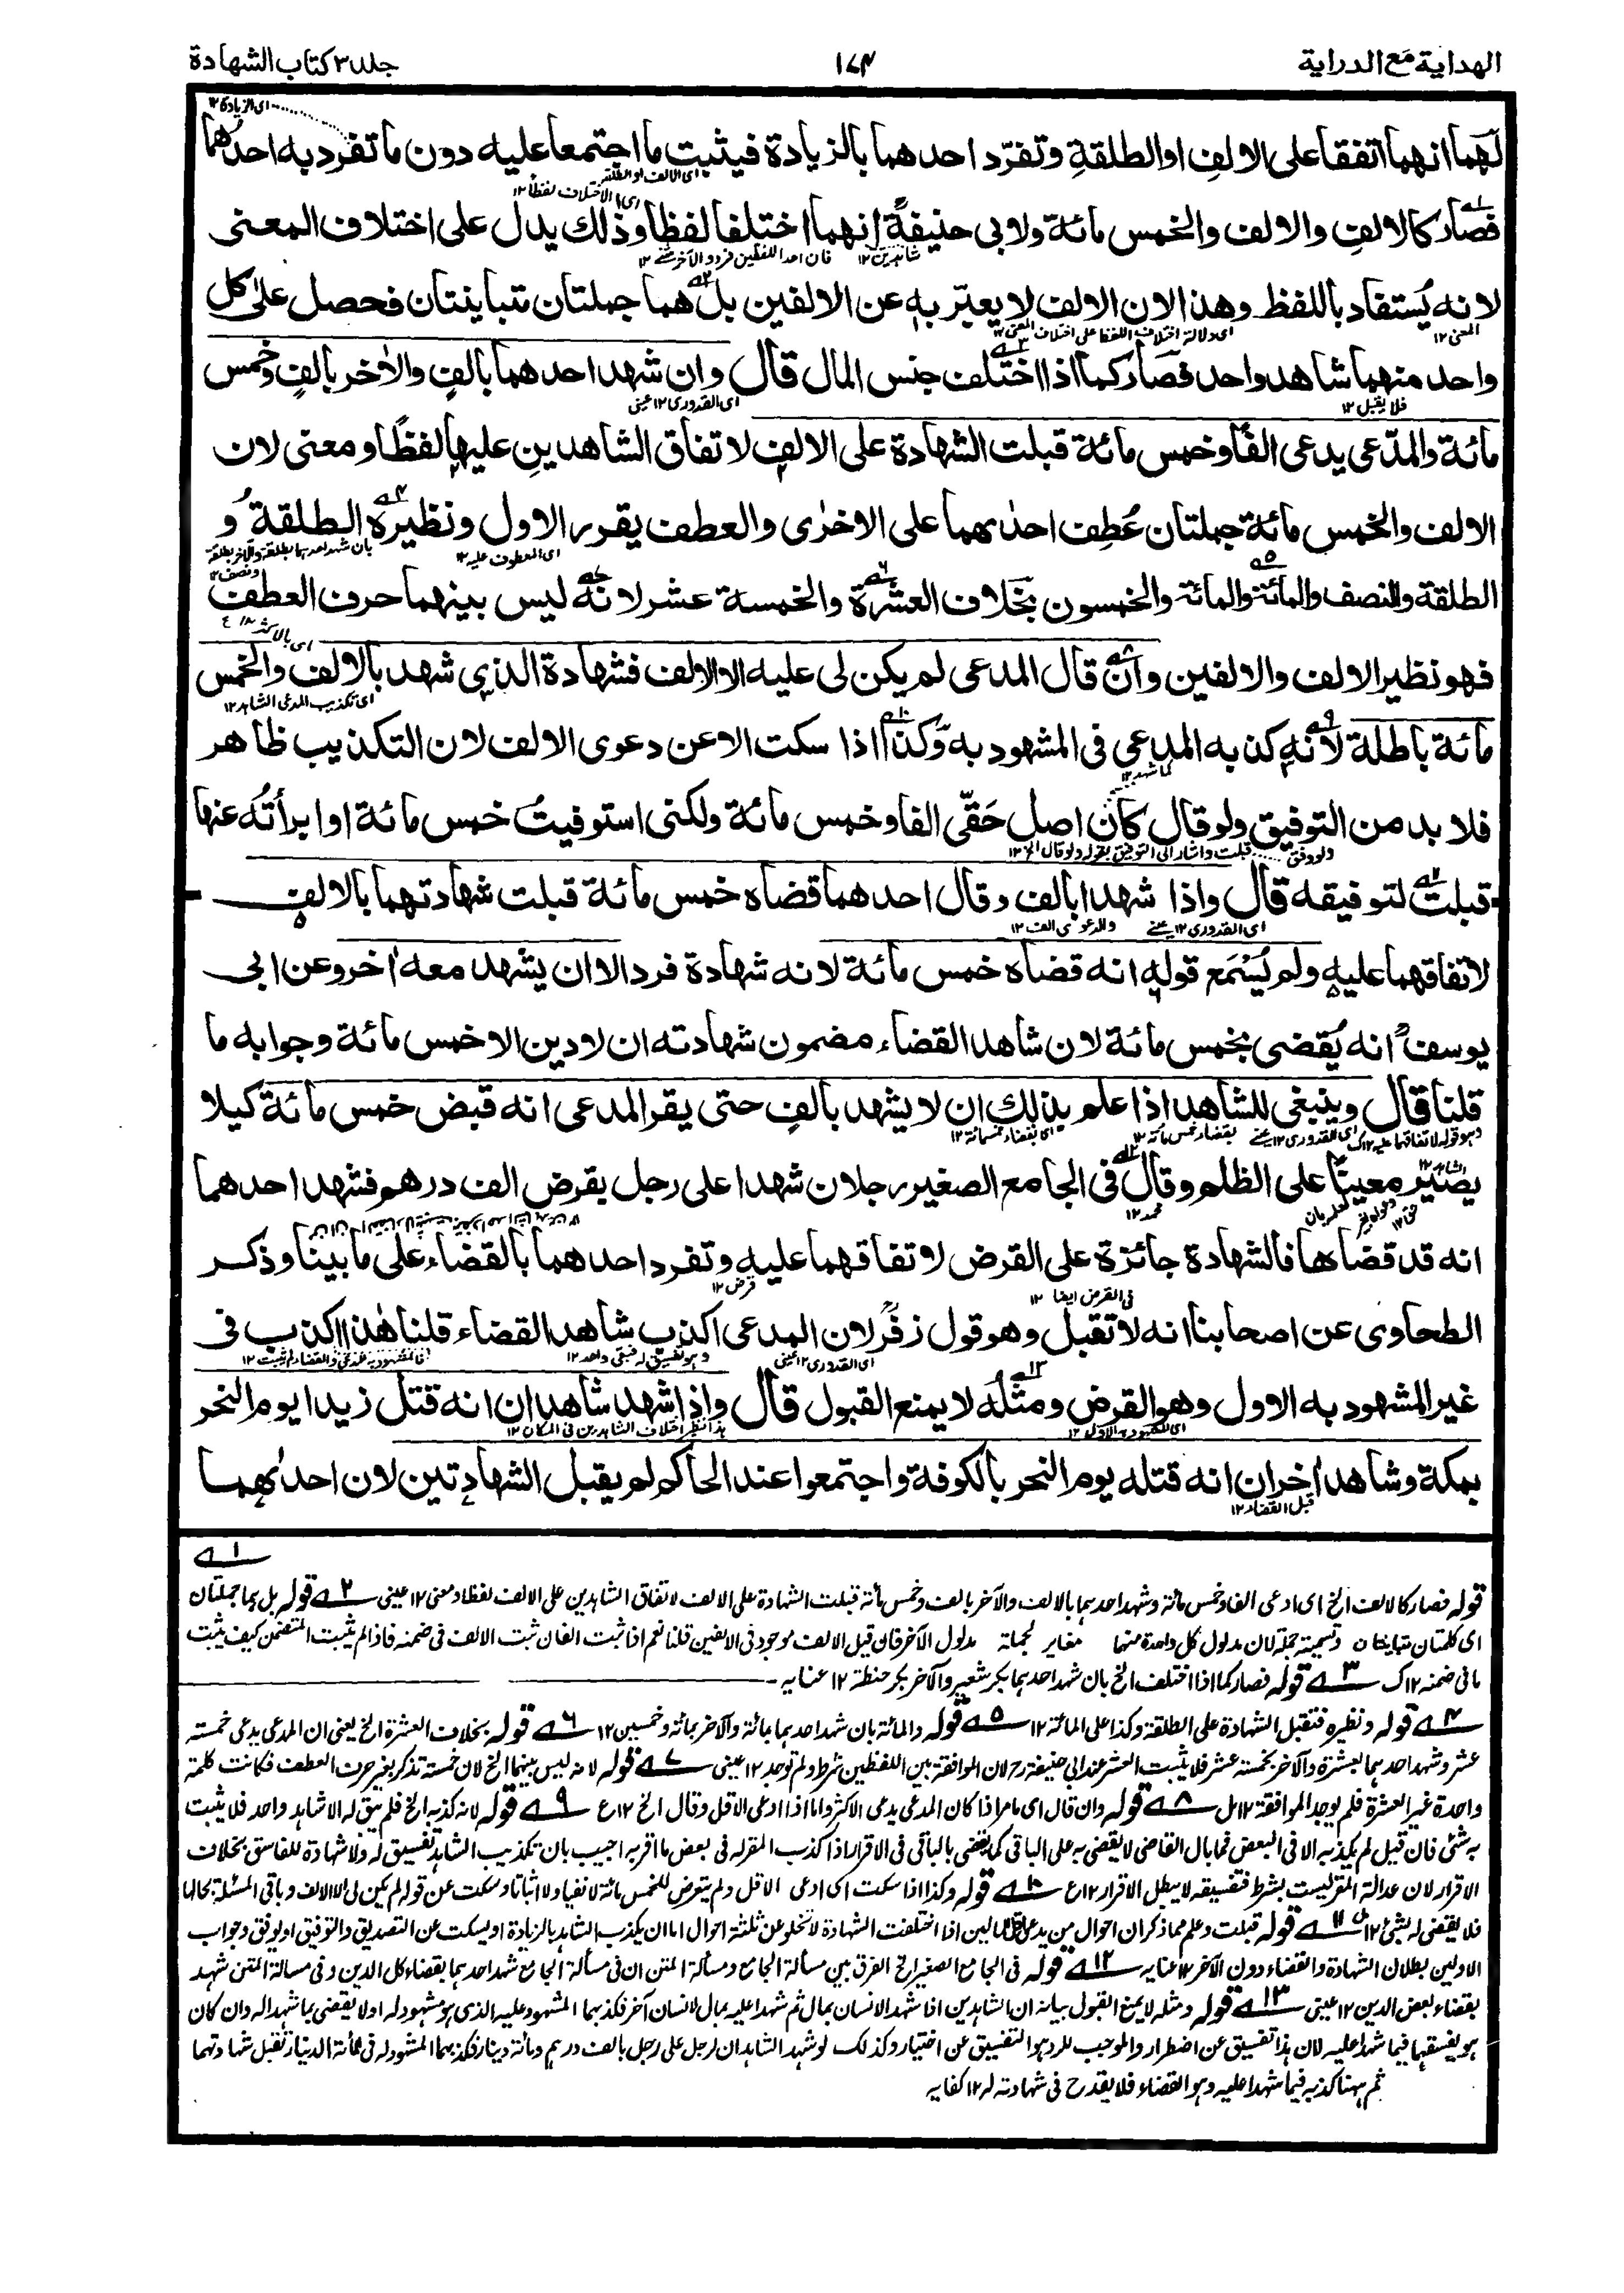 الهداية مع الدراية
١٧٤
جلد ٣ كتاب الشهادة
اى الزيادة ١٢
لهما انهما اتفقا على الالف او الطلقة وتفرد احدهما بالزيادة فيثبت ما اجتمعا عليه دون ما تفرد به احدهما
اى الالف او الطلقة
اى الاختلاف لفظا ١٢
فصار كالالف والالف والخمس مائة ولابى حنيفةؒ انهما اختلفا لفظا وذلك يدل على اختلاف المعنى
شاهدين ١٢
فان احد اللفظين فرد والآخر
لانه يُستفاد باللفظ وهذا لان الالف لا يعبّر به عن الالفين بل هما جملتان متباينتان فحصل على كل
المعنى ١٢
اى دلالة اختلاف اللفظ على اختلاف المعنى ١٢
واحد منهما شاهد واحد فصار كما اذا اختلف جنس المال قال وان شهد احدهما بالف والاخر بالف وخمس
فلا يقبل ١٢
اى القدورى ١٢ عينى
مائة والمدّعى يدعى الفًا وخمس مائة قبلت الشهادة على الالف لاتفاق الشاهدين عليها لفظًا ومعنى لان
الالف والخمس مائة جملتان عُطِف احدٰهما على الاخرٰى والعطف يقرر الاول ونظيره الطلقة و
اى المعطوف عليه ١٢
بان شهد احدهما بطلقة والآخر بطلقة ونصف ١٢
الطلقة والنصف والمائة والمائة والخمسون بخلاف العشرة والخمسة عشر لانه ليس بينهما حرف العطف
فهو نظير الالف والالفين وان قال المدعى لم يكن لى عليه الا الالف فشهادة الذى شهد بالالف والخمس
اى تكذيب المدعى الشاهد ١٢
مائة باطلة لانه كذبه المدعى فى المشهود به وكذا اذا سكت الا عن دعوى الالف لان التكذيب ظاهر
فلا بد من التوفيق ولو قال كان اصل حَقّى الفا وخمس مائة ولكنى استوفيتُ خمس مائة او ابرأتُه عنها
ولو وفق
قبلت واشار الى التوفيق بقوله ولو قال الخ ١٢
قبلت لتوفيقه قال واذا شهدا بالف وقال احدهما قضاه خمس مائة قبلت شهادتهما بالالف
اى القدورى ١٢ عينى
والدعوى الف ١٢
لاتفاقهما عليه ولم يُسْمَع قوله انه قضاه خمس مائة لانه شهادة فرد الا ان يشهد معه اٰخر وعن ابى
يوسفؒ انه يُقضى بخمس مائة لان شاهد القضاء مضمون شهادته ان لا دين الا خمس مائة وجوابه ما
قلنا قال وينبغى للشاهد اذا علم بذلك ان لا يشهد بالف حتى يقر المدعى انه قبض خمس مائة كيلا
وهو قوله لاتفاقهما عليه ١٢ ك
اى القدورى ١٢ عينى
بقضاء خمس مائة ١٢
اى بقضاء خمسمائة ١٢
يصير معينًا على الظلم وقال فى الجامع الصغير رجلان شهدا على رجل بقرض الف درهم فشهد احدهما
الشاهد ١٢
محمد ١٢
انه قد قضاها فالشهادة جائزة على القرض لاتفاقهما عليه وتفرد احدهما بالقضاء على ما بينا وذكر
قرض ١٢
فى القرض ايضا ١٢
الطحاوى عن اصحابنا انه لا تقبل وهو قول زفرؒ لان المدعى اكذب شاهد القضاء قلنا هٰذا اكذب فى
اى القدورى ١٢ عينى
وهو تفسيق له فبقى واحد ١٢
غير المشهود به الاول وهو القرض ومثله لا يمنع القبول قال واذا شهد شاهدان انه قتل زيدا يوم النحر
اى المشهود به الاول ١٢
هذا نظير اختلاف الشاهدين فى المكان ١٢
بمكة وشاهد اٰخران انه قتله يوم النحر بالكوفة واجتمعوا عند الحاكم لم يقبل الشهادتين لان احدٰهما
قبل القضاء ١٢
١
قوله فصار كالالف الخ اى ادعى الفا وخمس مائة وشهد احدهما بالالف والآخر بالف وخمس مائة قبلت الشهادة على الالف لاتفاق الشاهدين على الالف لفظا ومعنى ١٢ عينى ٢ قوله بل هما جملتان
اى كلمتان متباينتان وتسمية جملة لان مدلول كل واحدة منهما مغاير لجملة مدلول الآخر فان قيل الالف موجود فى الالفين قلنا نعم اذا ثبت الفان ثبت الالف فى ضمنه فاذا لم يثبت المتضمن كيف يثبت
ما فى ضمنه ١٢ ك ٣ قوله فصار كما اذا اختلف الخ بان شهد احدهما بكر شعير والآخر بكر حنطة ١٢ عنايه
٤ قوله ونظيره فتقبل الشهادة على الطلقة وكذا على المائة ١٢ ٥ قوله والمائة بان شهد احدهما بمائة والآخر بمائة وخمسين ١٢ ٦ قوله بخلاف العشرة الخ يعنى ان المدعى يدعى خمسته
عشر وشهد احدهما بعشرة والآخر بخمسة عشر فلا يثبت العشر عند ابى حنيفة رح لان الموافقة بين اللفظين شرط ولم توجد ١٢ عينى ٧ قوله لانه ليس بينهما الخ لان خمسة تذكر بغير حرف العطف فكانت كلمة
واحدة غير العشرة فلم يوجد الموافقة ١٢ مل ٨ قوله وان قال اى ما مر اذا كان المدعى يدعى الاكثر واما اذا ادعى الاقل وقال الخ ١٢ ع ٩ قوله لانه كذبه الخ فلم يبق له الا شاهد واحد فلا يثبت
به شئى فان قيل لم يكذبه الا فى البعض فما بال القاضى لا يقضى به على الباقى كما يقضى بالباقى فى الاقرار اذا كذب المقر له فى بعض ما اقر به اجيب بان تكذيب الشاهد تفسيق له ولا شهادة للفاسق بخلاف
الاقرار لان عدالة المقر ليست بشرط فتفسيقه لا يبطل الاقرار ١٢ ع ١٠ قوله وكذا اذا سكت اى ادعى الاقل ولم يتعرض للخمس مائة لا نفيا ولا اثباتا وسكت عن قوله لم يكن لى الا الالف وباقى المسئلة بحالها
فلا يقضى له بشئ ١٢ ١١ قوله قبلت وعلم مما ذكر ان احوال من يدعى اقل المالين اذا اختلفت الشهادة لا تخلو عن ثلثة احوال اما ان يكذب الشاهد بالزيادة او يسكت عن التصديق والتوفيق او يوفق وجواب
الاولين بطلان الشهادة والقضاء دون الآخر ١٢ عنايه ١٢ قوله فى الجامع الصغير الخ الفرق بين مسألة الجامع ومسألة المتن ان فى مسألة الجامع شهد احدهما بقضاء كل الدين وفى مسألة المتن شهد
بقضاء بعض الدين ١٢ عينى ١٣ قوله ومثله لا يمنع القبول بيانه ان الشاهدين اذا شهد الانسان بمال ثم شهدا عليه بمال لانسان آخر فكذبهما المشهود عليه الذى هو مشهود له اولا يقضى بما شهدا له وان كان
هو يفسقهما فيما شهدا عليه لان هذا تفسيق عن اضطرار والموجب للرد هو التفسيق عن اختيار وكذلك لو شهد الشاهدان لرجل على رجل بالف درهم ومائة دينار فكذبهما المشهود له فى مائة الدينار تقبل شهادتهما
ثم ههنا كذبه فيما شهدا عليه وهو القضاء فلا يقدح فى شهادته له ١٢ كفايه